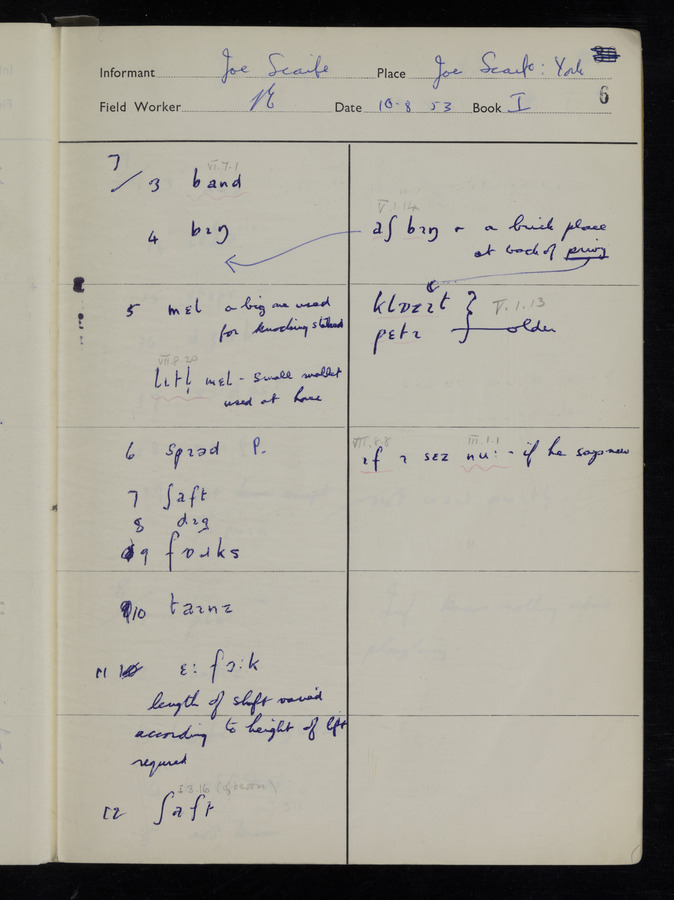 Informant Joe Scaife Place Joe Scaife: York
6
Field Worker Date 10-8 53 Book I
7
VI.7.1
/ 3 band
V.1.14
4 bɪŋ
aʃ bɪŋ - a brick place
at back of privy
5 mɛl a big one used
for knocking
klɒzɪt } V.1.13
pɛtɪ } older
VII.8.20
lɪtl̩ mɛl - small mallet
used at home
6 sprɛd P.
VIII.8.8 III.1.1
ɪf ɪ sɛz nu: - if he says
7 ʃaft
8
9 fɒɹks
10 taɪnz
11 ɛ: fɔ:k
length of shaft varied
according to height of lift
required
I.3.16
12 ʃaft